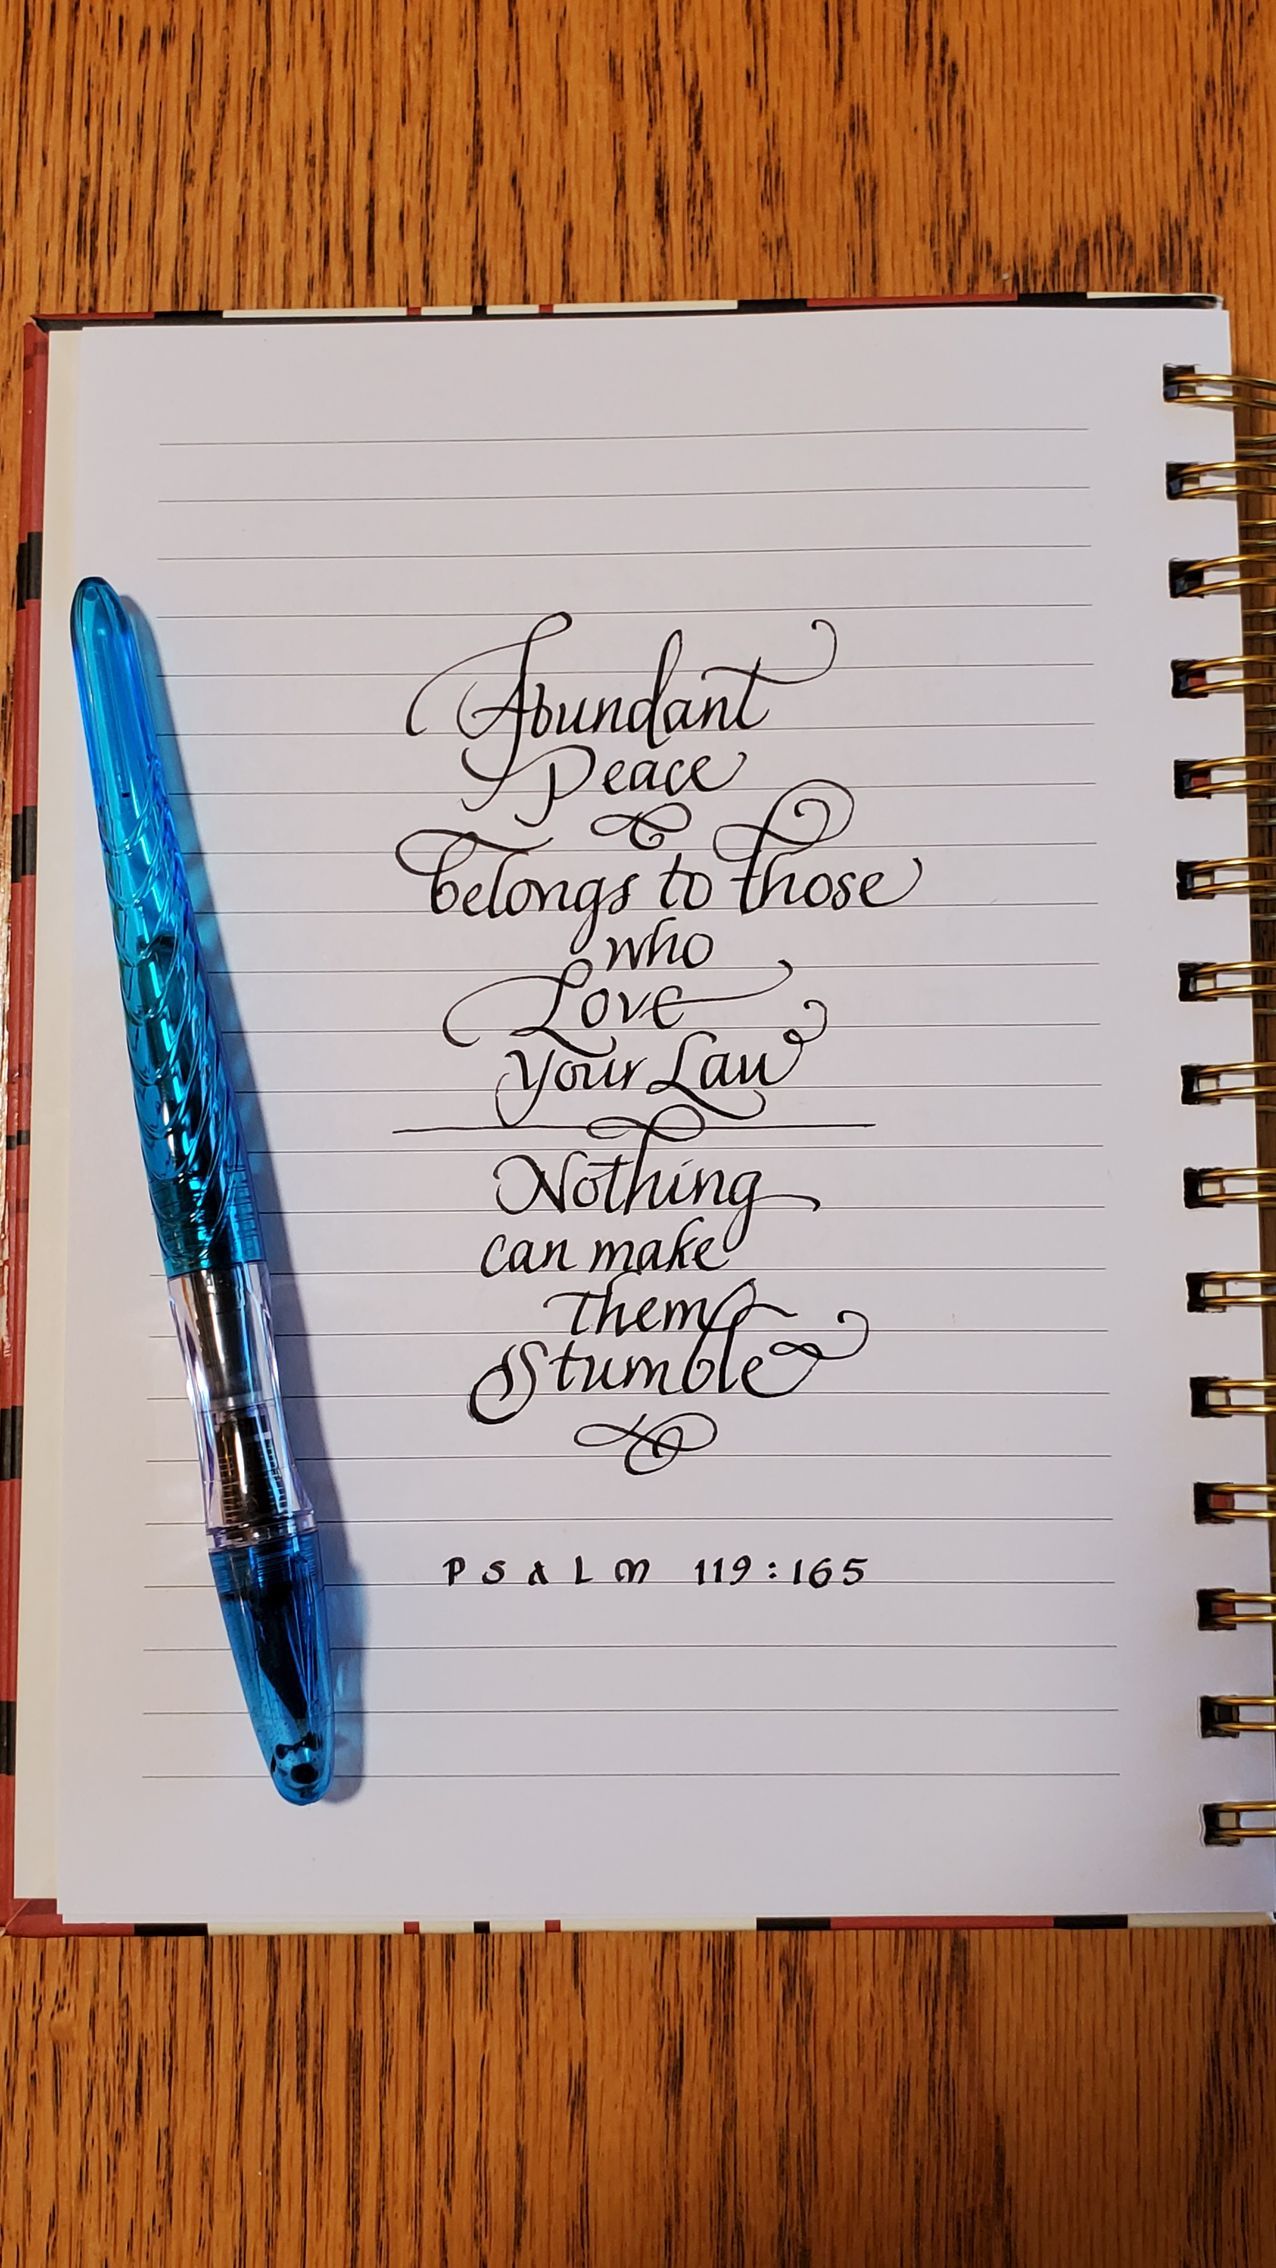 Abundant
Peace
belongs to those
who
Love
your Law
Nothing
can make
them
Stumble
PSALM 119:165